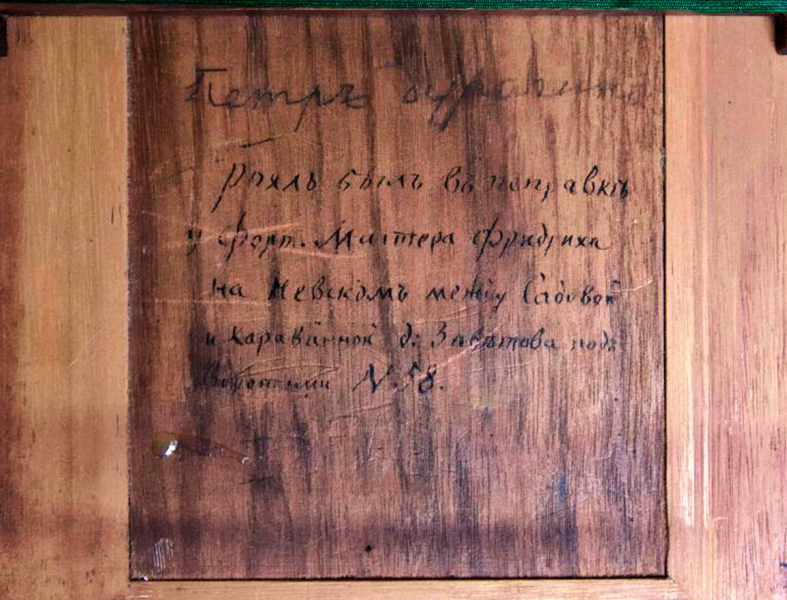 Петръ
Рояль былъ въ поправкѣ
у форт. Мастера Фридриха
на Невскомъ между Садовой
и Караванной д: Завѣтова подъ
Воротами N. 58.